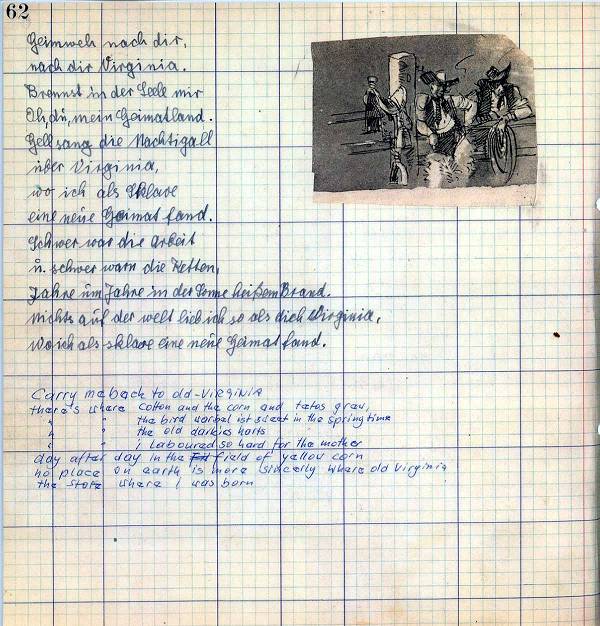 62
Heimweh nach dir,
nach dir Virginia.
Brennst in der Seele mir
Oh, du, mein Heimatland.
Hell sang die Nachtigall
über Virginia,
wo ich als Sklave
eine neue Heimat fand.
Schwer war die Arbeit
u. schwer warn die Ketten,
Jahre um Jahre in der Sonne heißem Brand.
Nichts auf der Welt lieb ich so als dich Virginia,
Wo ich als Sklave eine neue Heimat fand.
Carry me back to old-Virginia
there's where cotton and the corn and tatos grow,
" " the bird warbel ist sweet in the springtime
" " the old darkies harts
" " i laboured so hard for the mother
day after day in the field of yellow corn
no place on earth is more sincerly where old Virginia
the state where I was born